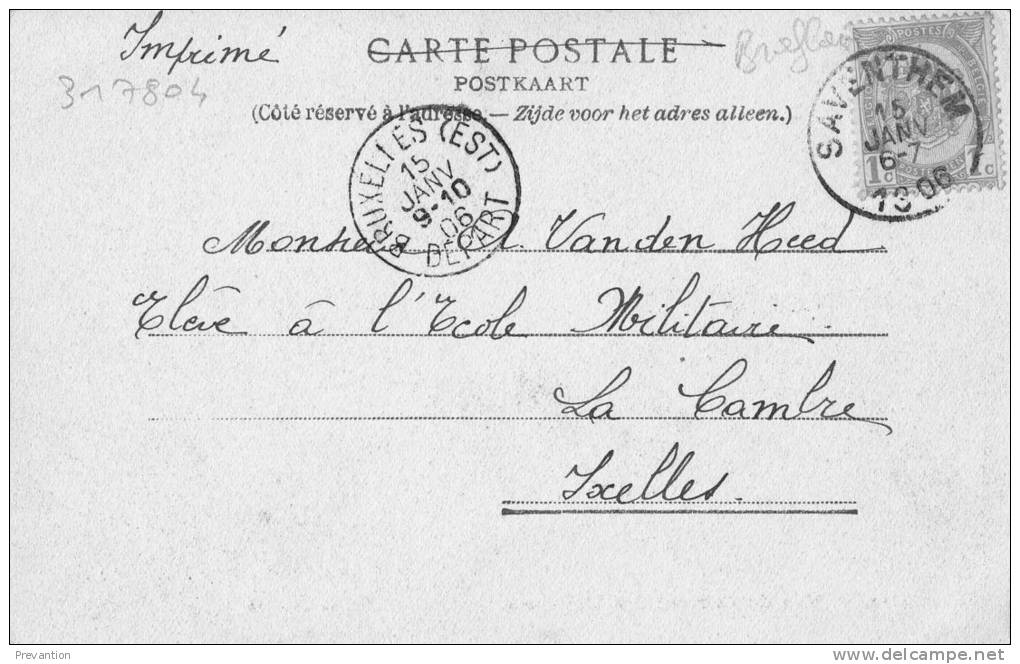 Imprimé
CARTE POSTALE
POSTKAART
317804
(Côté réservé à l'adresse. — Zijde voor het adres alleen.)
POSTES
1c 1c
SAVENTHEM
15
JANV
6-7
1906
BRUXELLES (EST)
15
JANV
9-10
06
DEPART
Monsieur Van den Heed
Elève à l'Ecole Militaire
La Cambre
Ixelles.
Prevantion
delcampe.net